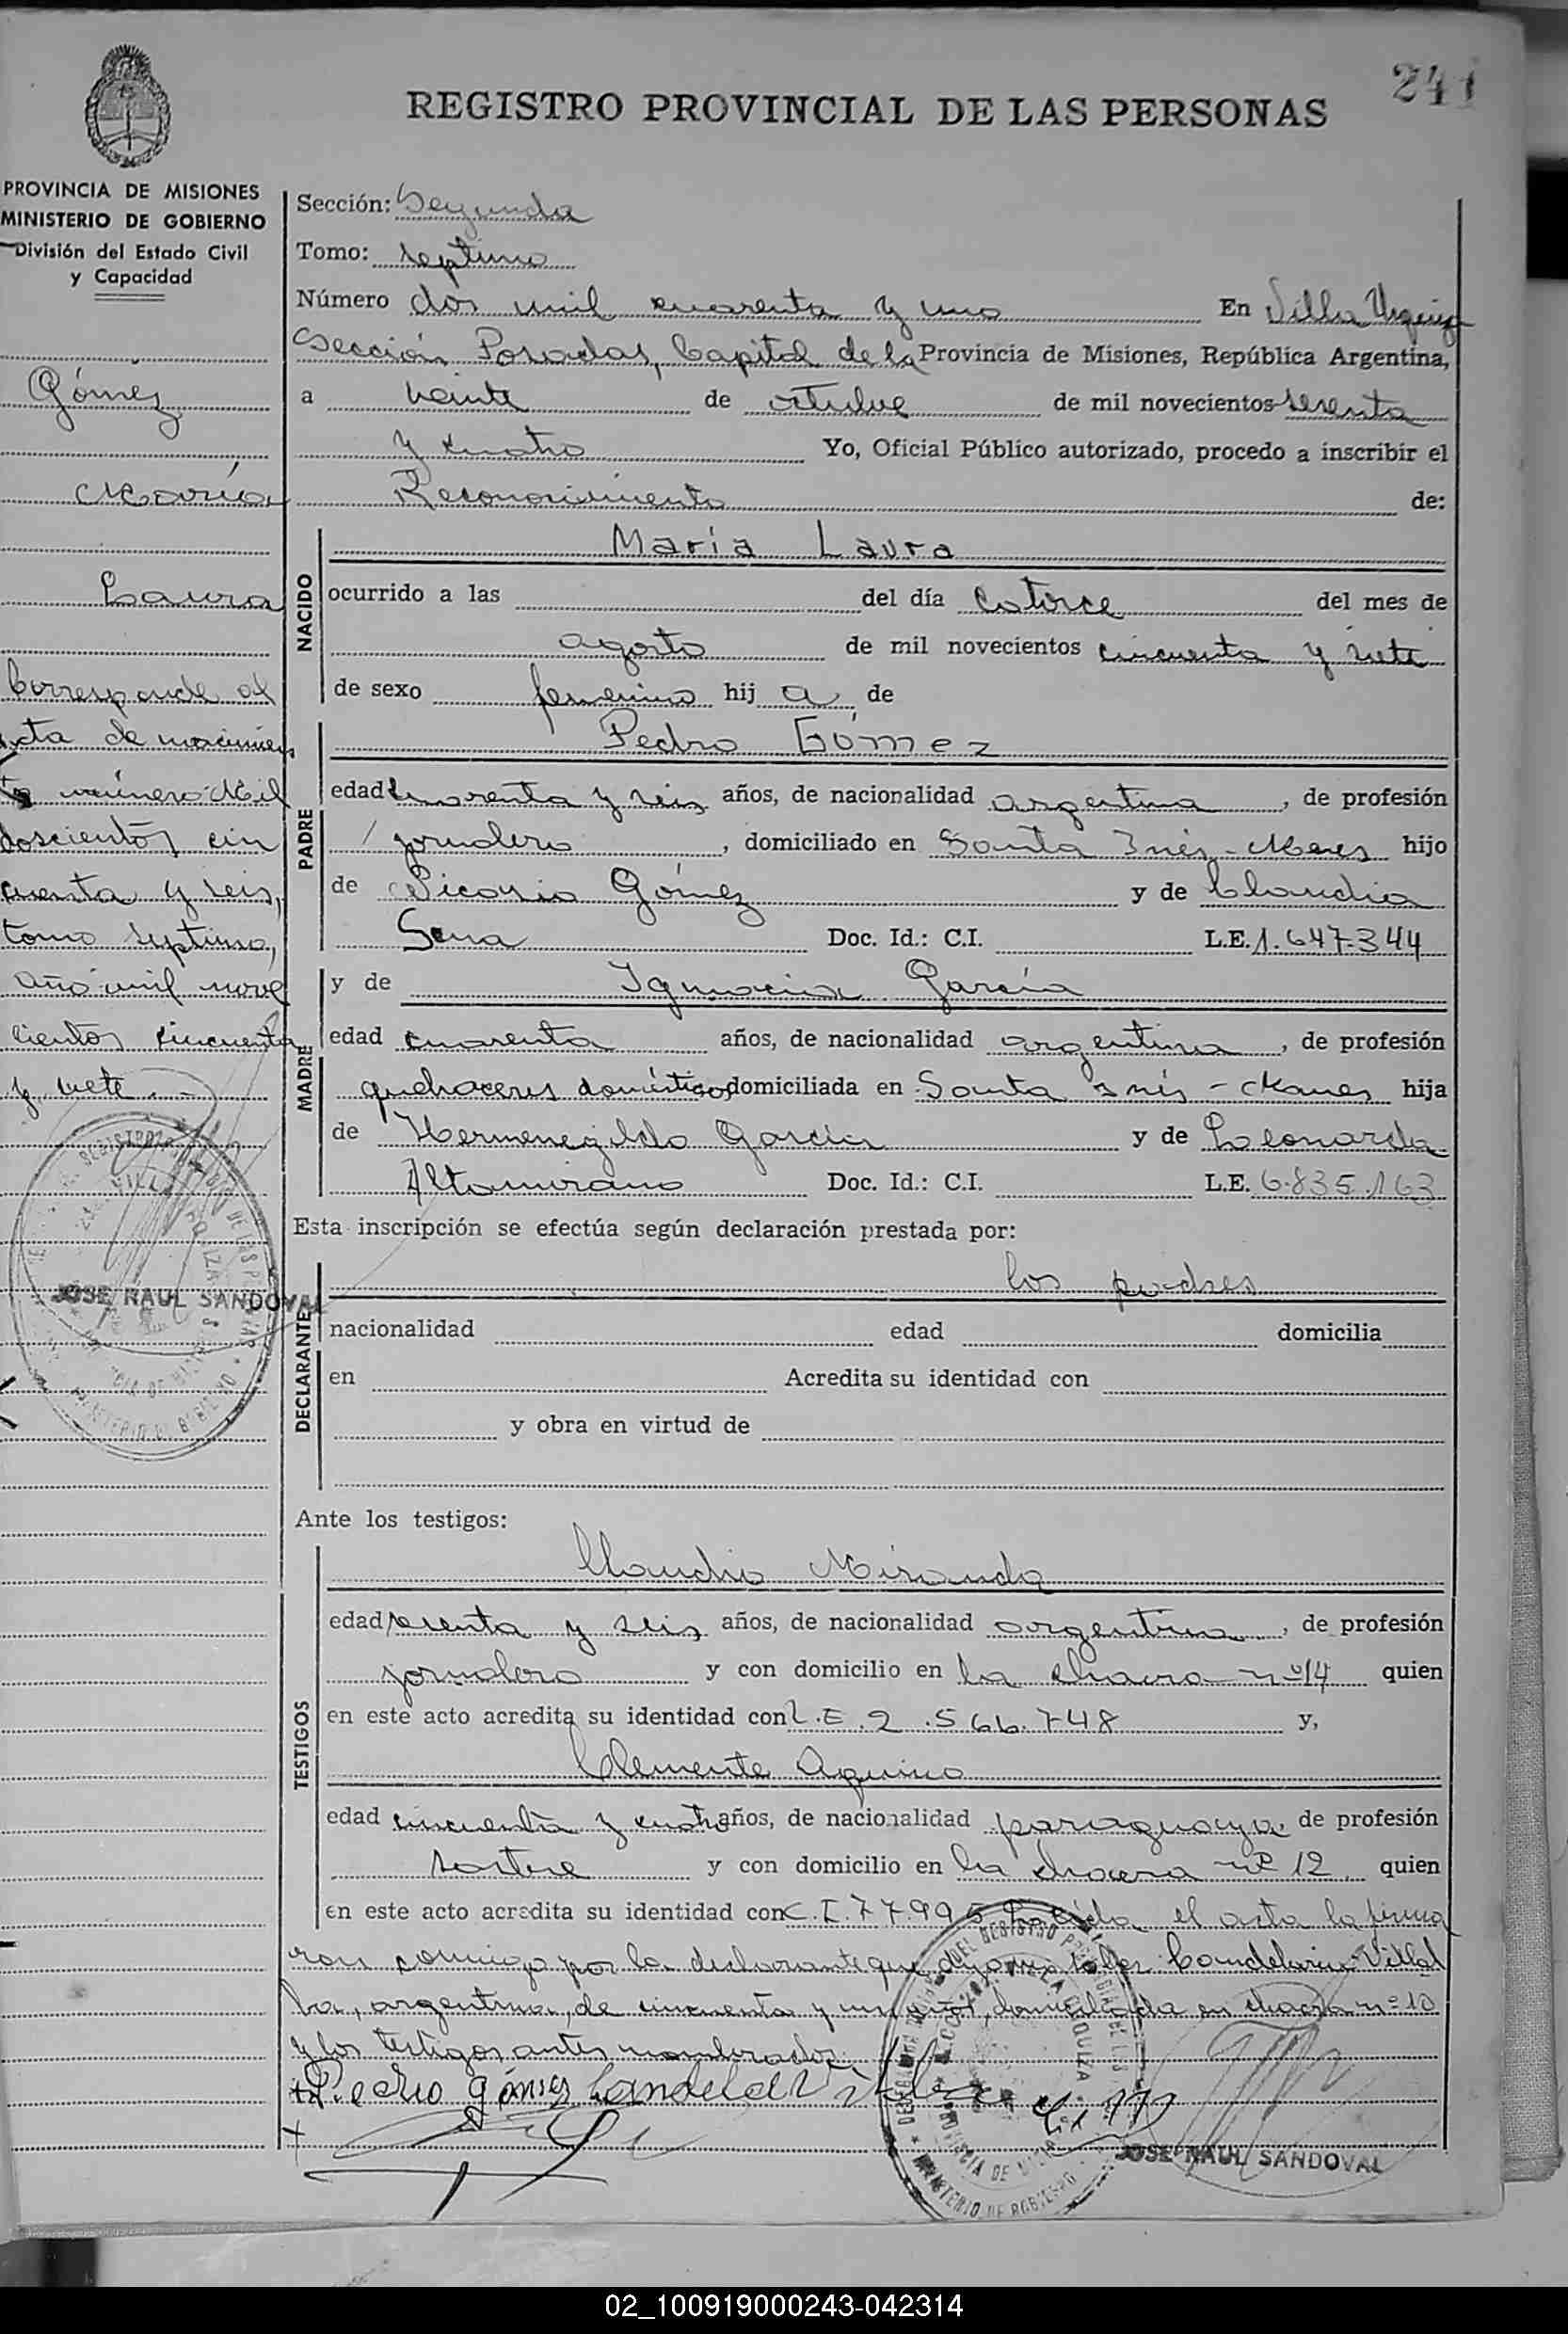 241
REGISTRO PROVINCIAL DE LAS PERSONAS
PROVINCIA DE MISIONES
MINISTERIO DE GOBIERNO
División del Estado Civil
y Capacidad
Gómez
María
Laura
Corresponde al
acta de nacimien
to número Mil
doscientos cin
cuenta y seis,
tomo septimo,
año mil nove
cientos cincuenta
y siete.-
JOSE RAUL SANDOVAL
Sección: Segunda
Tomo: septimo
Número dos mil cuarenta y uno En Villa Urquiza
Sección Posadas, Capital de la Provincia de Misiones, República Argentina,
a veinte de octubre de mil novecientos sesenta
y cuatro Yo, Oficial Público autorizado, procedo a inscribir el
Reconocimiento de:
NACIDO
María Laura
ocurrido a las del día catorce del mes de
agosto de mil novecientos cincuenta y siete
de sexo femenino hij a de
PADRE
Pedro Gómez
edad cuarenta y seis años, de nacionalidad argentina, de profesión
jornalero, domiciliado en Santa Inés - hijo
de Gómez y de Claudia
Sena Doc. Id.: C.I. L.E. 1.647.344
MADRE
y de Ignacia García
edad cuarenta años, de nacionalidad argentina, de profesión
quehaceres domésticos domiciliada en Santa Inés - hija
de Hermenegildo García y de Leonarda
Altamirano Doc. Id.: C.I. L.E. 6.835.163
Esta inscripción se efectúa según declaración prestada por:
DECLARANTE
los padres
nacionalidad edad domicilia
en Acredita su identidad con
y obra en virtud de
Ante los testigos:
TESTIGOS
Claudio Miranda
edad sesenta y seis años, de nacionalidad argentina, de profesión
jornalero y con domicilio en la chacra nº 14 quien
en este acto acredita su identidad con L.E. 2.566.748 y,
Clemente Aquino
edad cincuenta y cuatro años, de nacionalidad paraguaya, de profesión
sastre y con domicilio en la chacra nº 12 quien
en este acto acredita su identidad con C.I. 77.995 Leída el acta la firma
ron conmigo por la declarante que dijo no saber Candelaria Villal
ba, argentina, de cincuenta y un años, domiciliada en chacra nº 10
y los testigos antes nombrados.
Pedro Gómez
JOSE RAUL SANDOVAL
02_100919000243-042314